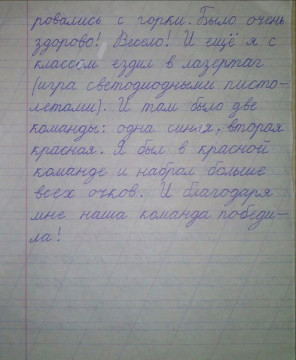 ровались с горки. Было очень
здорово! Весело! И ещё я с
классом ездил в лазертаг
(игра светодиодными писто-
летами). И там было две
команды: одна синяя, вторая
красная. Я был в красной
команде и набрал больше
всех очков. И благодаря
мне наша команда победи-
ла!